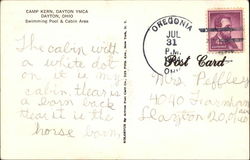 CAMP KERN, DAYTON YMCA
DAYTON, OHIO
Swimming Pool & Cabin Area
OREGONIA
JUL
31
P.M.
OHIO
Post Card
The cabin with
a white dot
on it is my
cabin. there is
a barn back
there it is the
horse barn
Mrs Peffley
4040
Dayton 20, Ohio